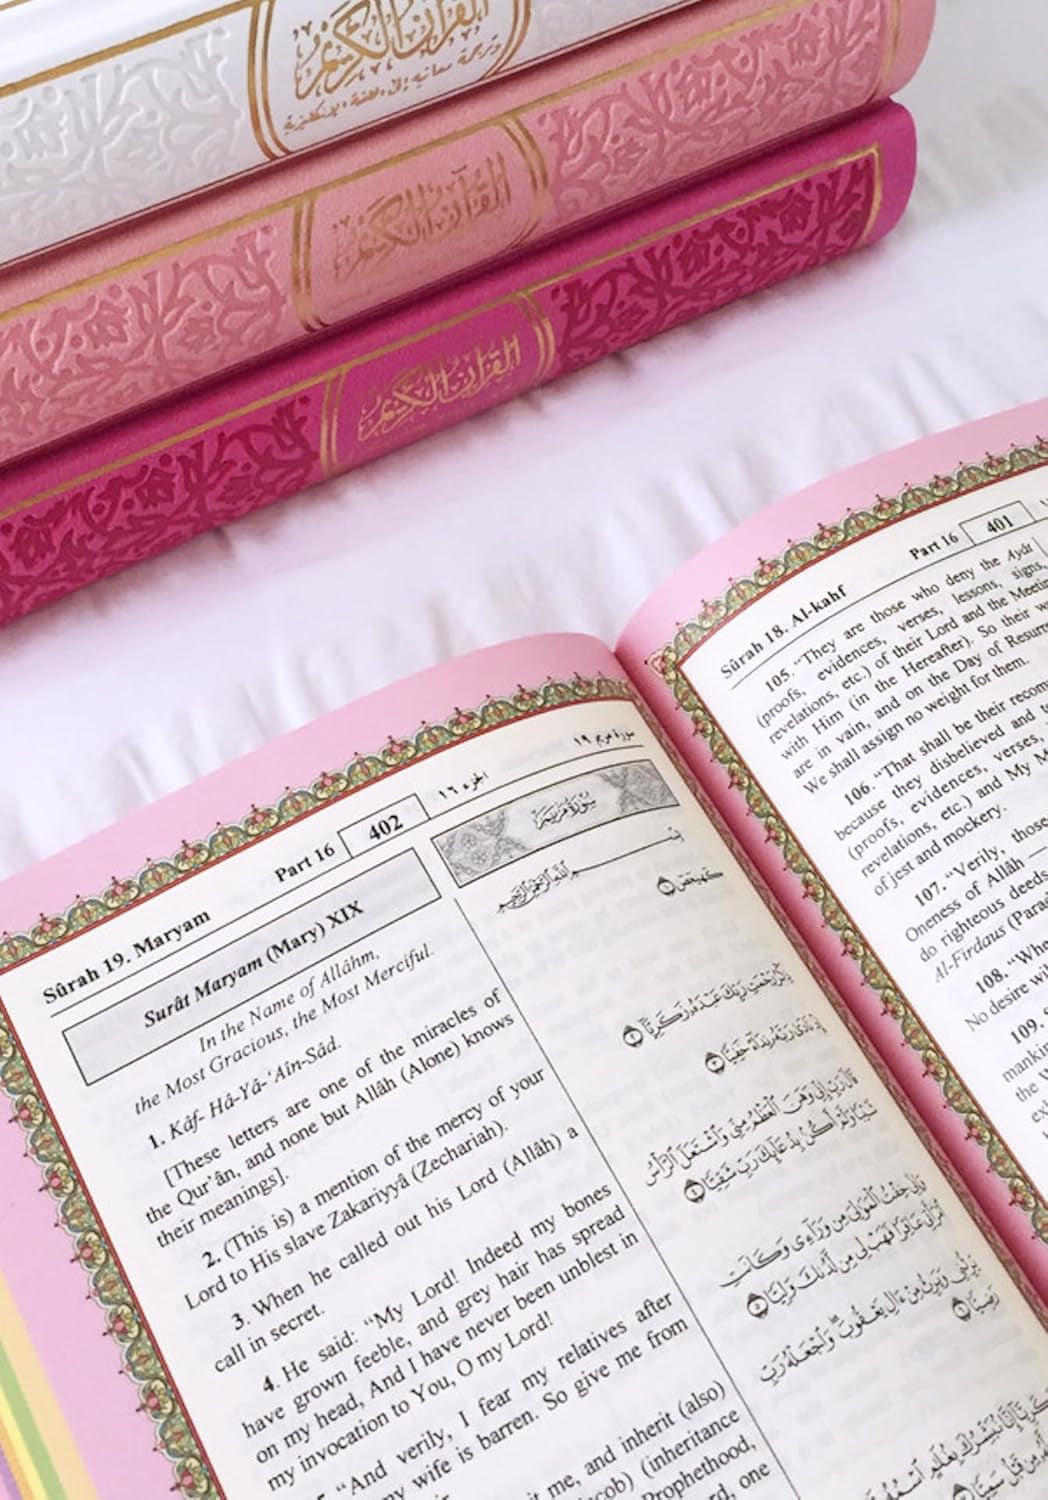 القرآن الكريم
وترجمة معانيه إلى اللغة الإنكليزية
القرآن الكريم
القرآن الكريم
Sûrah 19. Maryam
Part 16
402
الجزء ١٦
سورة مريم ١٩
Surât Maryam (Mary) XIX
In the Name of Allâhm,
the Most Gracious, the Most Merciful.
1. Kâf- Hâ-Yâ-‘Aîn-Sâd.
[These letters are one of the miracles of
the Qur’ân, and none but Allâh (Alone) knows
their meanings].
2. (This is) a mention of the mercy of your
Lord to His slave Zakariyyâ (Zechariah).
3. When he called out his Lord (Allâh) a
call in secret.
4. He said: “My Lord! Indeed my bones
have grown feeble, and grey hair has spread
on my head, And I have never been unblest in
my invocation to You, O my Lord!
“And verily, I fear my relatives after
my wife is barren. So give me from
me, and inherit (also)
(inheritance
Prophethood,
one
سُورَةُ مَرْيَمَ
بِسْمِ اللَّهِ الرَّحْمَٰنِ الرَّحِيمِ
كٓهيعٓصٓ ١
ذِكْرُ رَحْمَتِ رَبِّكَ عَبْدَهُۥ زَكَرِيَّآ ٢
إِذْ نَادَىٰ رَبَّهُۥ نِدَآءً خَفِيًّا ٣
قَالَ رَبِّ إِنِّي وَهَنَ ٱلْعَظْمُ مِنِّي وَٱشْتَعَلَ ٱلرَّأْسُ
شَيْبًا وَلَمْ أَكُنۢ بِدُعَآئِكَ رَبِّ شَقِيًّا ٤
وَإِنِّي خِفْتُ ٱلْمَوَٰلِيَ مِن وَرَآءِى وَكَانَتِ
ٱمْرَأَتِى عَاقِرًا فَهَبْ لِى مِن لَّدُنكَ وَلِيًّا ٥
يَرِثُنِى وَيَرِثُ مِنْ ءَالِ يَعْقُوبَ وَٱجْعَلْهُ رَبِّ
رَضِيًّا ٦
Sûrah 18. Al-kahf
Part 16
401
105. “They are those who deny the Ayât
(proofs, evidences, verses, lessons, signs,
revelations, etc.) of their Lord and the Meeting
with Him (in the Hereafter). So their
are in vain, and on the Day of
We shall assign no weight for them.
106. “That shall be their
because they disbelieved and
(proofs, evidences, verses,
revelations, etc.) and My
of jest and mockery.
107. “Verily, those
Oneness of Allâh —
do righteous deeds
Al-Firdaus
108.
No desire
109.
the